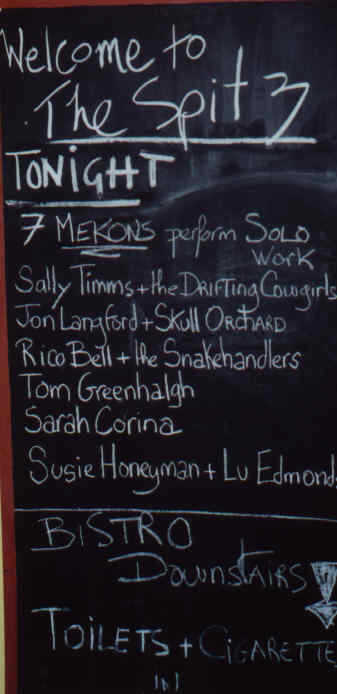 Welcome to
The Spitz
TONIGHT
7 MEKONS perform SOLO
WORK
Sally Timms + the DRIFTING Cowgirls
Jon Langford + SKULL ORCHARD
Rico Bell + the Snakehandlers
Tom Greenhalgh
Sarah Corina
Susie Honeyman + Lu Edmond
BISTRO
DOWNSTAIRS
TOILETS + CIGARETTE